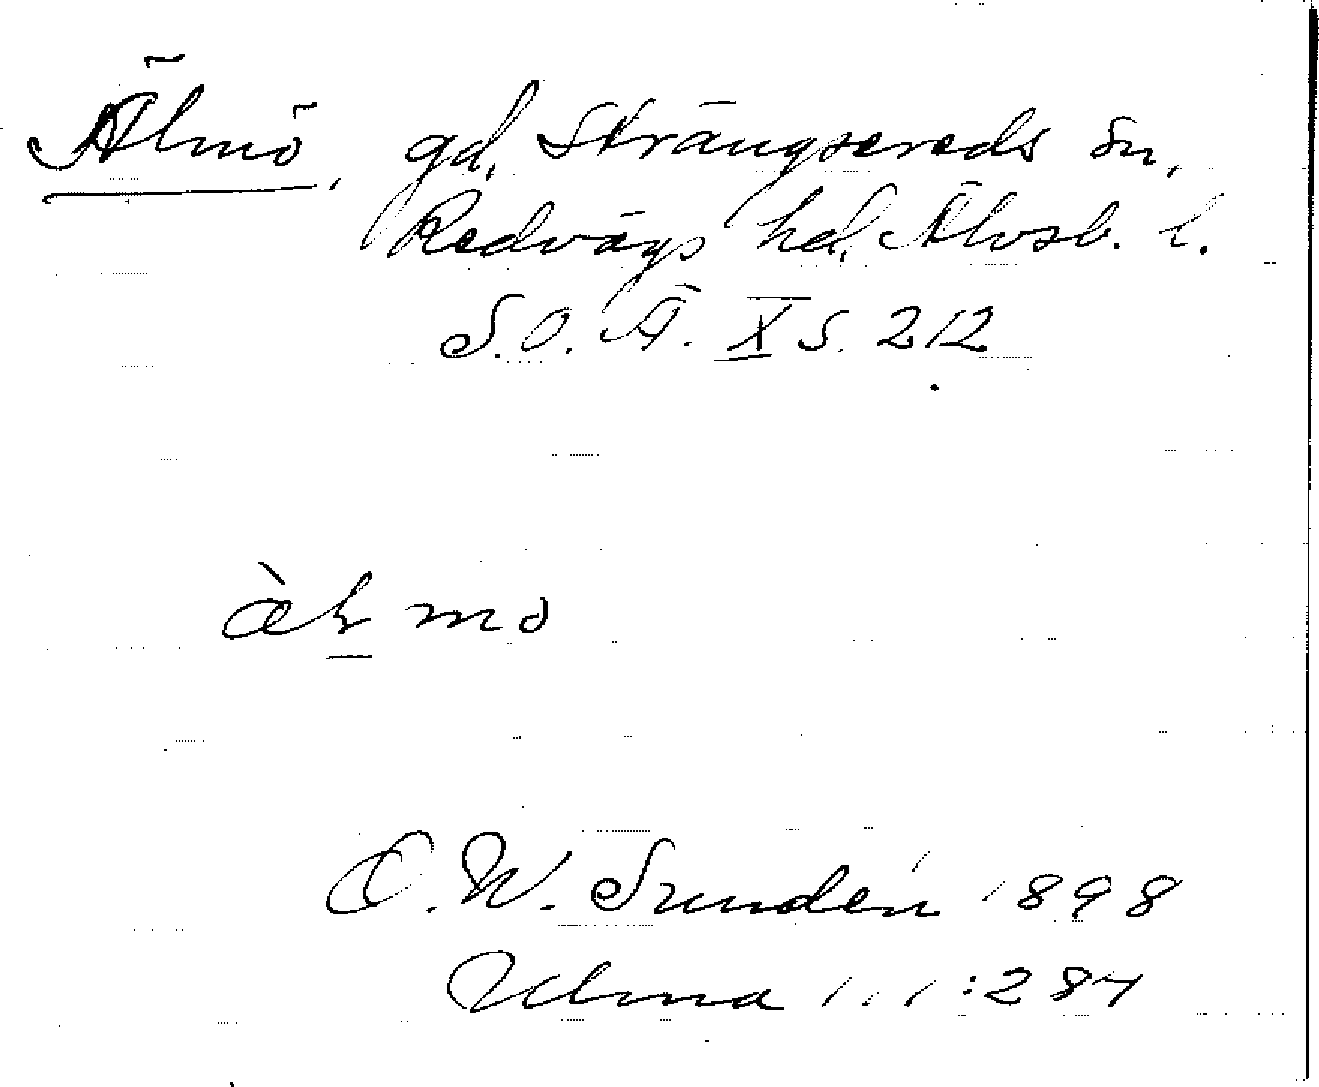 Älmö, gd, Strängsereds sn,
Redvägs hd, Älvsb. l.
S.O.Ä. X s. 212
D. W. Sundén 1898
Ulma 111:284